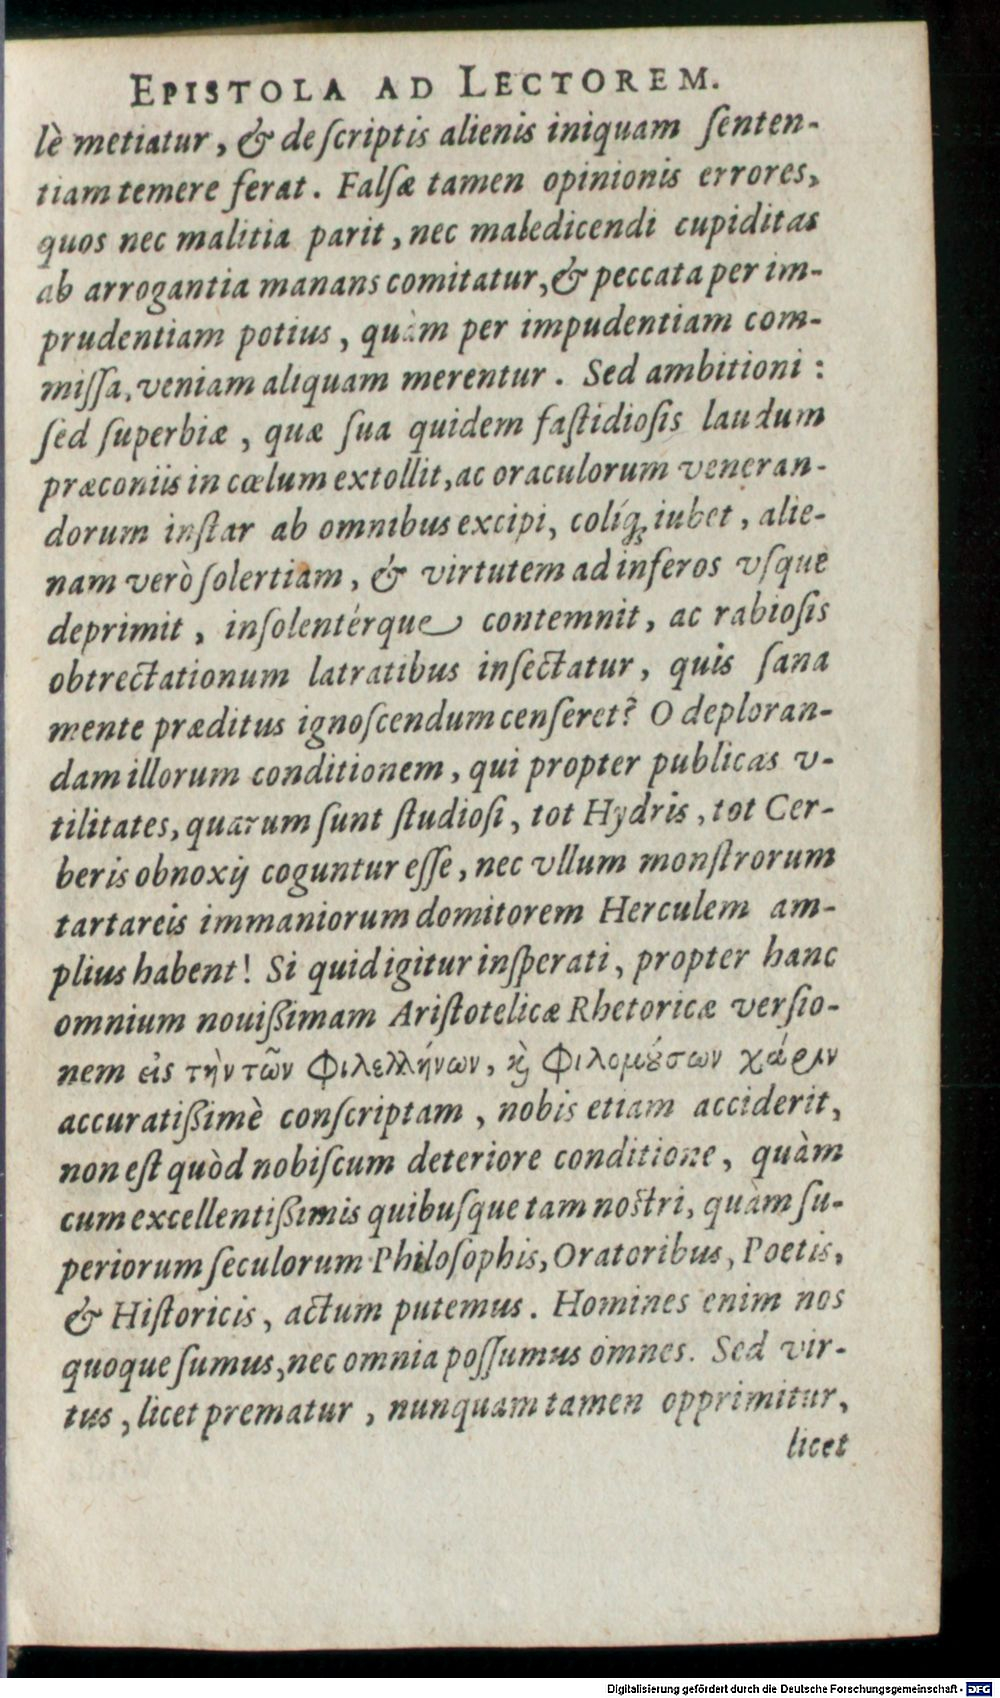 EPISTOLA AD LECTOREM.
lè metiatur, & de ſcriptis alienis iniquam ſenten-
tiam temere ferat. Falſæ tamen opinionis errores,
quos nec malitia parit, nec maledicendi cupiditas
ab arrogantia manans comitatur, & peccata per im-
prudentiam potius, quàm per impudentiam com-
miſſa, veniam aliquam merentur. Sed ambitioni:
ſed ſuperbiæ, quæ ſua quidem faſtidioſis laudum
præconiis in cœlum extollit, ac oraculorum veneran-
dorum inſtar ab omnibus excipi, colíq; iubet, alie-
nam verò ſolertiam, & virtutem ad inferos vſque
deprimit, inſolentérque contemnit, ac rabioſis
obtrectationum latratibus inſectatur, quis ſana
mente præditus ignoſcendum cenſeret? O deploran-
dam illorum conditionem, qui propter publicas v-
tilitates, quarum ſunt ſtudioſi, tot Hydris, tot Cer-
beris obnoxij coguntur eſſe, nec vllum monſtrorum
tartareis immaniorum domitorem Herculem am-
plius habent! Si quid igitur inſperati, propter hanc
omnium nouißimam Ariſtotelicæ Rhetoricæ verſio-
nem εἰς τὴν τῶν Φιλελλήνων, ϗ̀ Φιλομȣ́σων χάριν
accuratißimè conſcriptam, nobis etiam acciderit,
non eſt quòd nobiſcum deteriore conditione, quàm
cum excellentißimis quibuſque tam noſtri, quàm ſu-
periorum ſeculorum Philoſophis, Oratoribus, Poetis,
& Hiſtoricis, actum putemus. Homines enim nos
quoque ſumus, nec omnia poſſumus omnes. Sed vir-
tus, licet prematur, nunquam tamen opprimitur,
licet
Digitalisierung gefördert durch die Deutsche Forschungsgemeinschaft - DFG